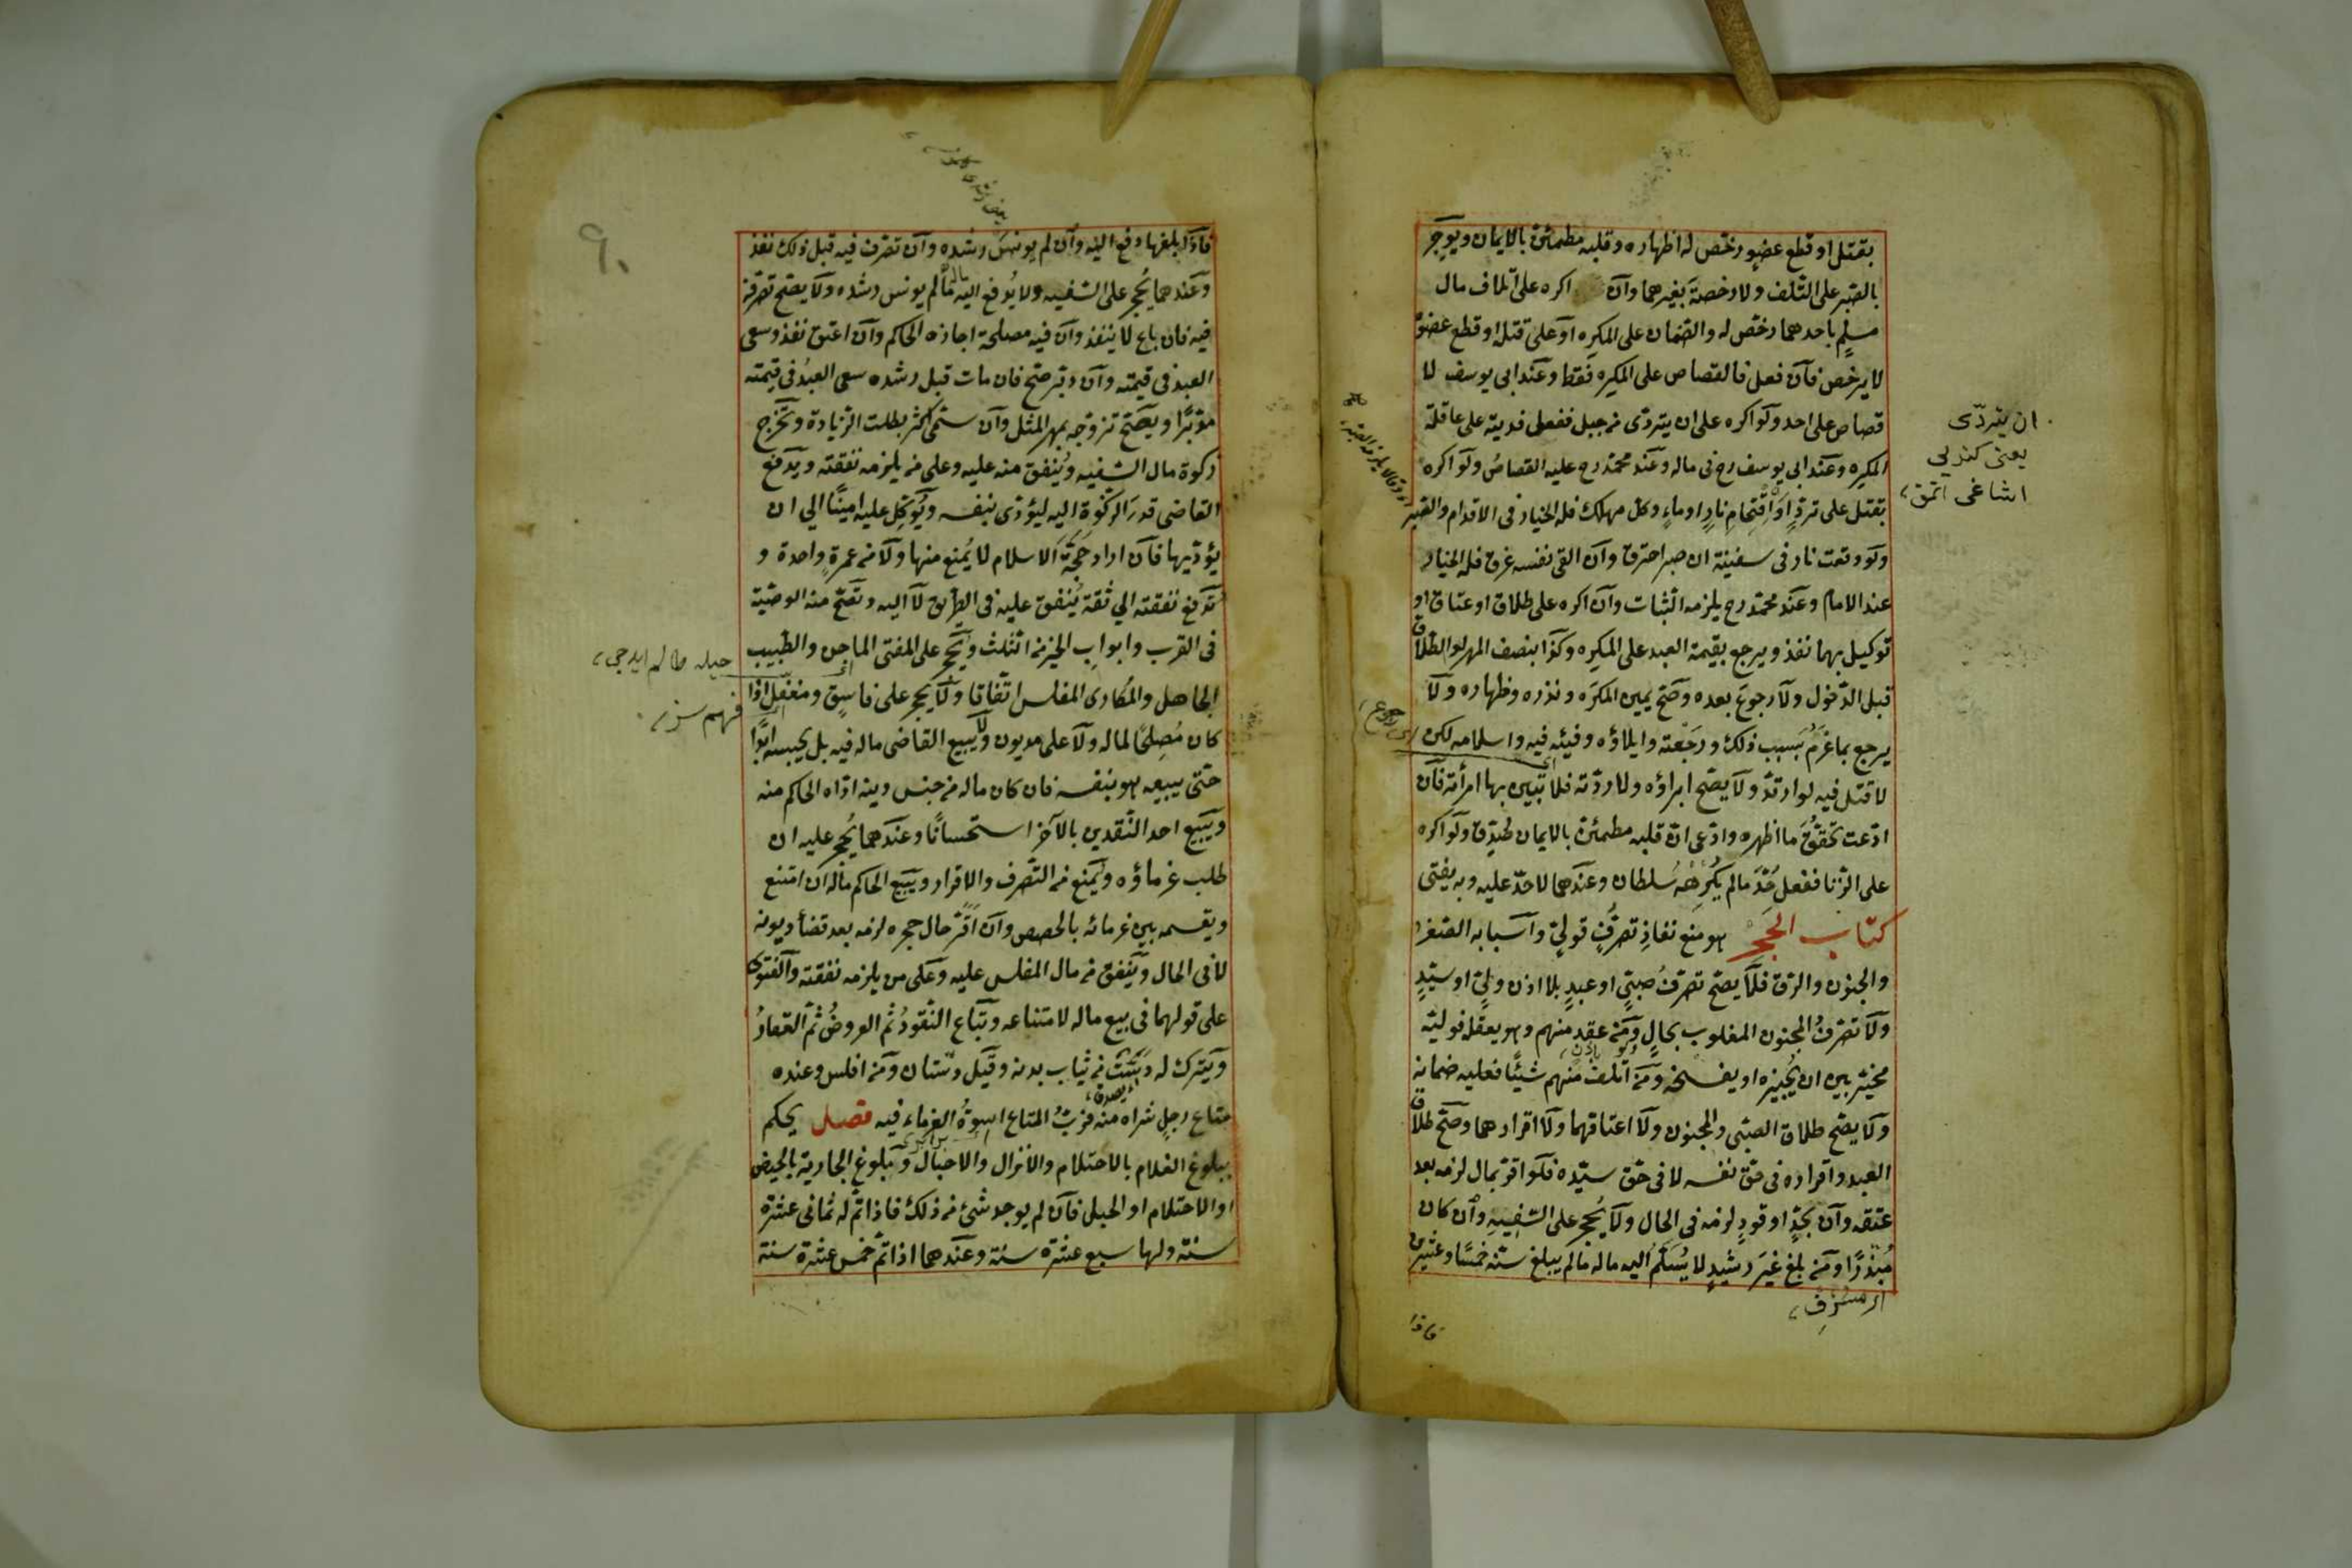 بقتل او قطع عضو رخص له اظهاره وقلبه مطمئن بالايمان ويوجر
بالصبر على التلف ولا رخصة بغيرهما وان اكره على اتلاف مال
مسلم باحدهما رخص له والضمان على المكره او على قتله او قطع عضوه
لا يرخص فان فعل فالقصاص على المكره فقط وعند ابى يوسف لا
قصاص على احد ولو اكره على ان يتردى من جبل ففعل فديته على عاقلة
المكره وعند ابى يوسف رح فى ماله وعند محمد رح عليه القصاص ولو اكره
بقتل على ترد او اقتحام نار او ماء وكل مهلك فله الخيار فى الاقدام والصبر
ولو وقعت نار فى سفينة ان صبر احترق وان القى نفسه غرق فله الخيار
عند الامام وعند محمد رح يلزمه الثبات وان اكره على طلاق او عتاق او
توكيل بهما نفذ ويرجع بقيمة العبد على المكره وكذا بنصف المهر لو الطلاق
قبل الدخول ولا رجوع بعده وصح يمين المكره ونذره وظهاره ولا
يرجع بما غرم بسبب ذلك ورجعته وايلاؤه وفيئه فيه واسلامه لكن
لا قتل فيه لو ارتد ولا يصح ابراؤه ولا ردته فلا تبين بها امرأته فان
ادعت تحقق ما اظهره وادعى ان قلبه مطمئن بالايمان صدق ولو اكره
على الزنا ففعل حد مالم يكرهه سلطان وعندهما لا حد عليه وبه يفتى
كتاب الحجر هو منع نفاذ تصرف قولى واسبابه الصغر
والجنون والرق فلا يصح تصرف صبى او عبد بلا اذن ولى او سيد
ولا تصرف المجنون المغلوب بحال ومن عقد منهم وهو يعقله فوليه
مخير بين ان يجيزه او يفسخه ومن اتلف منهم شيئا فعليه ضمانه
ولا يصح طلاق الصبى والمجنون ولا اعتاقهما ولا اقرارهما وصح طلاق
العبد واقراره فى حق نفسه لا فى حق سيده فلو اقر بمال لزمه بعد
عتقه وان بحد او قود لزمه فى الحال ولا يحجر على السفيه وان كان
مبذرا ومن بلغ غير رشيد لا يسلم اليه ماله مالم يبلغ سنه خمسا وعشرين
اى مسرف
فاذا
ان يتردى
يعنى كندىى
اشاغى اتمق
اى رجوع
فاذا بلغها دفع اليه وان لم يونس رشده وان تصرف فيه قبل ذلك نفذ
وعندهما يحجر على السفيه ولا يدفع اليه ماله مالم يونس رشده ولا يصح تصرفه
فيه فان باع لا ينفذ وان فيه مصلحة اجازه الحاكم وان اعتق نفذ وسعى
العبد فى قيمته وان دبر صح فان مات قبل رشده سعى العبد فى قيمته
مدبرا ويصح تزوجه بمهر المثل وان سمى اكثر بطلت الزيادة وتخرج
زكوة مال السفيه وينفق منه عليه وعلى من يلزمه نفقته ويدفع
القاضى قدر الزكوة اليه ليؤدى بنفسه ويوكل عليه امينا الى ان
يؤديها فان اراد حجة الاسلام لا يمنع منها ولا من عمرة واحدة و
تدفع نفقته الى ثقة ينفق عليه فى الطريق لا اليه وتصح منه الوصية
فى القرب وابواب الخير من الثلث ويحجر على المفتى الماجن والطبيب
الجاهل والمكارى المفلس اتفاقا ولا يحجر على فاسق ومغفل اذا
كان مصلحا لماله ولا على مديون ولا يبيع القاضى ماله فيه بل يحبسه ابدا
حتى يبيعه هو بنفسه فان كان ماله من جنس دينه اداه الحاكم منه
ويبيع احد النقدين بالآخر استحسانا وعندهما يحجر عليه ان
طلب غرماؤه ويمنع من التصرف والاقرار ويبيع الحاكم ماله ان امتنع
ويقسمه بين غرمائه بالحصص وان اقر حال حجره لزمه بعد قضأ ديونه
لا فى الحال وينفق من مال المفلس عليه وعلى من يلزمه نفقته والفتوى
على قولهما فى بيع ماله لامتناعه وتباع النقود ثم العروض ثم العقار
ويترك له دست من ثياب بدنه وقيل دستان ومن افلس وعنده
متاع رجل شراه منه فرب المتاع اسوة الغرماء فيه فصل يحكم
ببلوغ الغلام بالاحتلام والانزال والاحبال وببلوغ الجارية بالحيض
او الاحتلام او الحبل فان لم يوجد شئ من ذلك فاذا تم له ثمانى عشرة
سنة ولها سبع عشرة سنة وعندهما اذا تم خمس عشرة سنة
حيله
فهم سز
٩٠